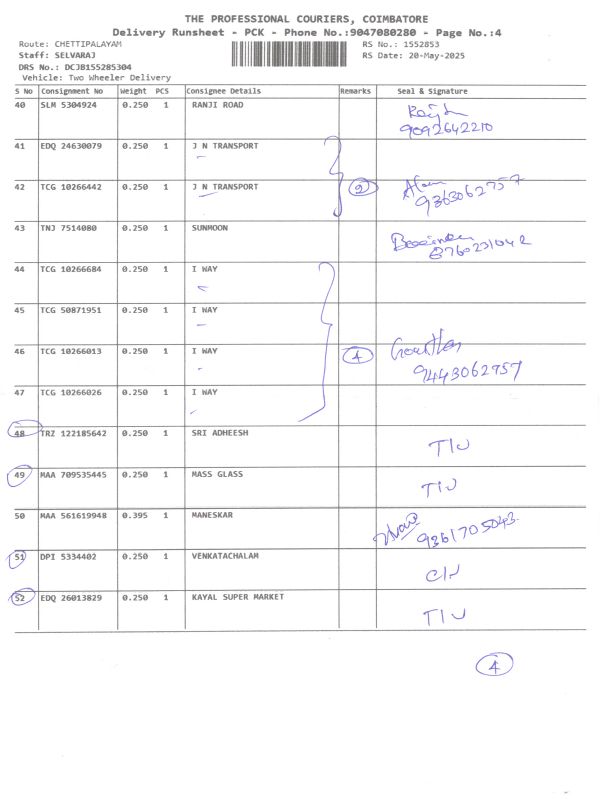 THE PROFESSIONAL COURIERS, COIMBATORE
Delivery Runsheet - PCK - Phone No.:9047080280 - Page No.:4
Route: CHETTIPALAYAM RS No.: 1552853
Staff: SELVARAJ RS Date: 20-May-2025
DRS No.: DCJB155285304
Vehicle: Two Wheeler Delivery
S No Consignment No Weight PCS Consignee Details Remarks Seal & Signature
40 SLM 5304924 0.250 1 RANJI ROAD
9092642210
41 EDQ 24630079 0.250 1 J N TRANSPORT
42 TCG 10266442 0.250 1 J N TRANSPORT 2
9363062757
43 TNJ 7514080 0.250 1 SUNMOON
8760231042
44 TCG 10266684 0.250 1 I WAY
45 TCG 50871951 0.250 1 I WAY
46 TCG 10266013 0.250 1 I WAY 4
9443062757
47 TCG 10266026 0.250 1 I WAY
48 TRZ 122185642 0.250 1 SRI ADHEESH
49 MAA 709535445 0.250 1 MASS GLASS
50 MAA 561619948 0.395 1 MANESKAR
9361705043
51 DPI 5334402 0.250 1 VENKATACHALAM
52 EDQ 26013829 0.250 1 KAYAL SUPER MARKET
4